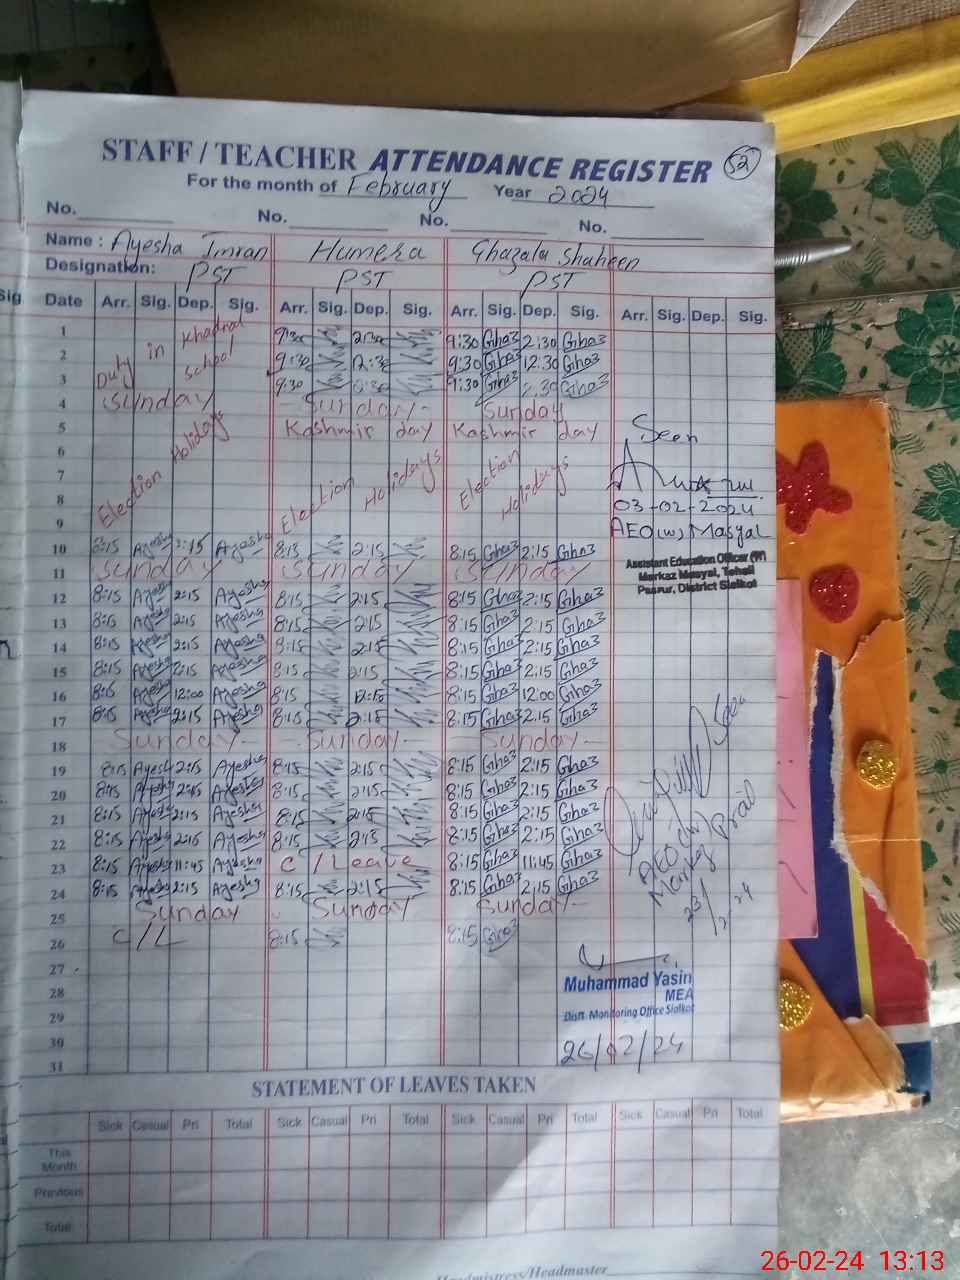 STAFF / TEACHER ATTENDANCE REGISTER 52
For the month of February Year 2024
No. No. No. No.
Name : Ayesha Imran Humera Ghazala Shaheen
Designation: PST PST PST
Sig. Date Arr. Sig. Dep. Sig. Arr. Sig. Dep. Sig. Arr. Sig. Dep. Sig. Arr. Sig. Dep. Sig.
1 Duty in School 9:30 2:30 9:30 Gha3 2:30 Gha3
2 9:30 12:30 9:30 Gha3 12:30 Gha3
3 9:30 9:30 Gha3 2.30 Gha3
4 Sunday Sunday- Sunday
5 Kashmir day Kashmir day
6 Election Holidays Election Holidays Election Holidays
7
8
9
Seen
03-02-2024
AEO(w) Masyal
Assistant Education Officer (W)
Markaz Masyal, Tehsil
Pasrur, District Sialkot
10 8:15 Ayesha 2:15 Ayesha 8:15 2:15 8:15 Gha3 2:15 Gha3
11 Sunday Sunday Sunday
12 8:15 Ayesha 2:15 Ayesha 8:15 2:15 8:15 Gha3 2:15 Gha3
13 8:15 Ayesha 2:15 Ayesha 8:15 2:15 8:15 Gha3 2:15 Gha3
14 8:15 Ayesha 2:15 Ayesha 8:15 2:15 8:15 Gha3 2:15 Gha3
15 8:15 Ayesha 2:15 Ayesha 8:15 2:15 8:15 Gha3 2:15 Gha3
16 8:15 Ayesha 12:00 Ayesha 8:15 12:15 8:15 Gha3 12:00 Gha3
17 8:15 Ayesha 2:15 Ayesha 8:15 2:15 8:15 Gha3 2:15 Gha3
18 Sunday- -Sunday- -Sunday-
19 8:15 Ayesha 2:15 Ayesha 8:15 2:15 8:15 Gha3 2:15 Gha3
20 8:15 Ayesha 2:15 Ayesha 8:15 2:15 8:15 Gha3 2:15 Gha3
21 8:15 Ayesha 2:15 Ayesha 8:15 2:15 8:15 Gha3 2:15 Gha3
22 8:15 Ayesha 2:15 Ayesha 8:15 2:15 8:15 Gha3 2:15 Gha3
23 8:15 Ayesha 11:45 Ayesha C/Leave 8:15 Gha3 11:45 Gha3
24 8:15 Ayesha 2:15 Ayesha 8:15 2:15 8:15 Gha3 2:15 Gha3
25 Sunday Sunday Sunday-
26 C/L 8:15 8:15 Gha3
Seen
AEO
Markaz
27
28
29
30
31
Muhammad Yasin
MEA
Distt. Monitoring Office Sialkot
26/02/24
STATEMENT OF LEAVES TAKEN
Sick Casual Pri Total Sick Casual Pri Total Sick Casual Pri Total Sick Casual Pri Total
This Month
Previous
Total
Headmistress/Headmaster
26-02-24 13:13